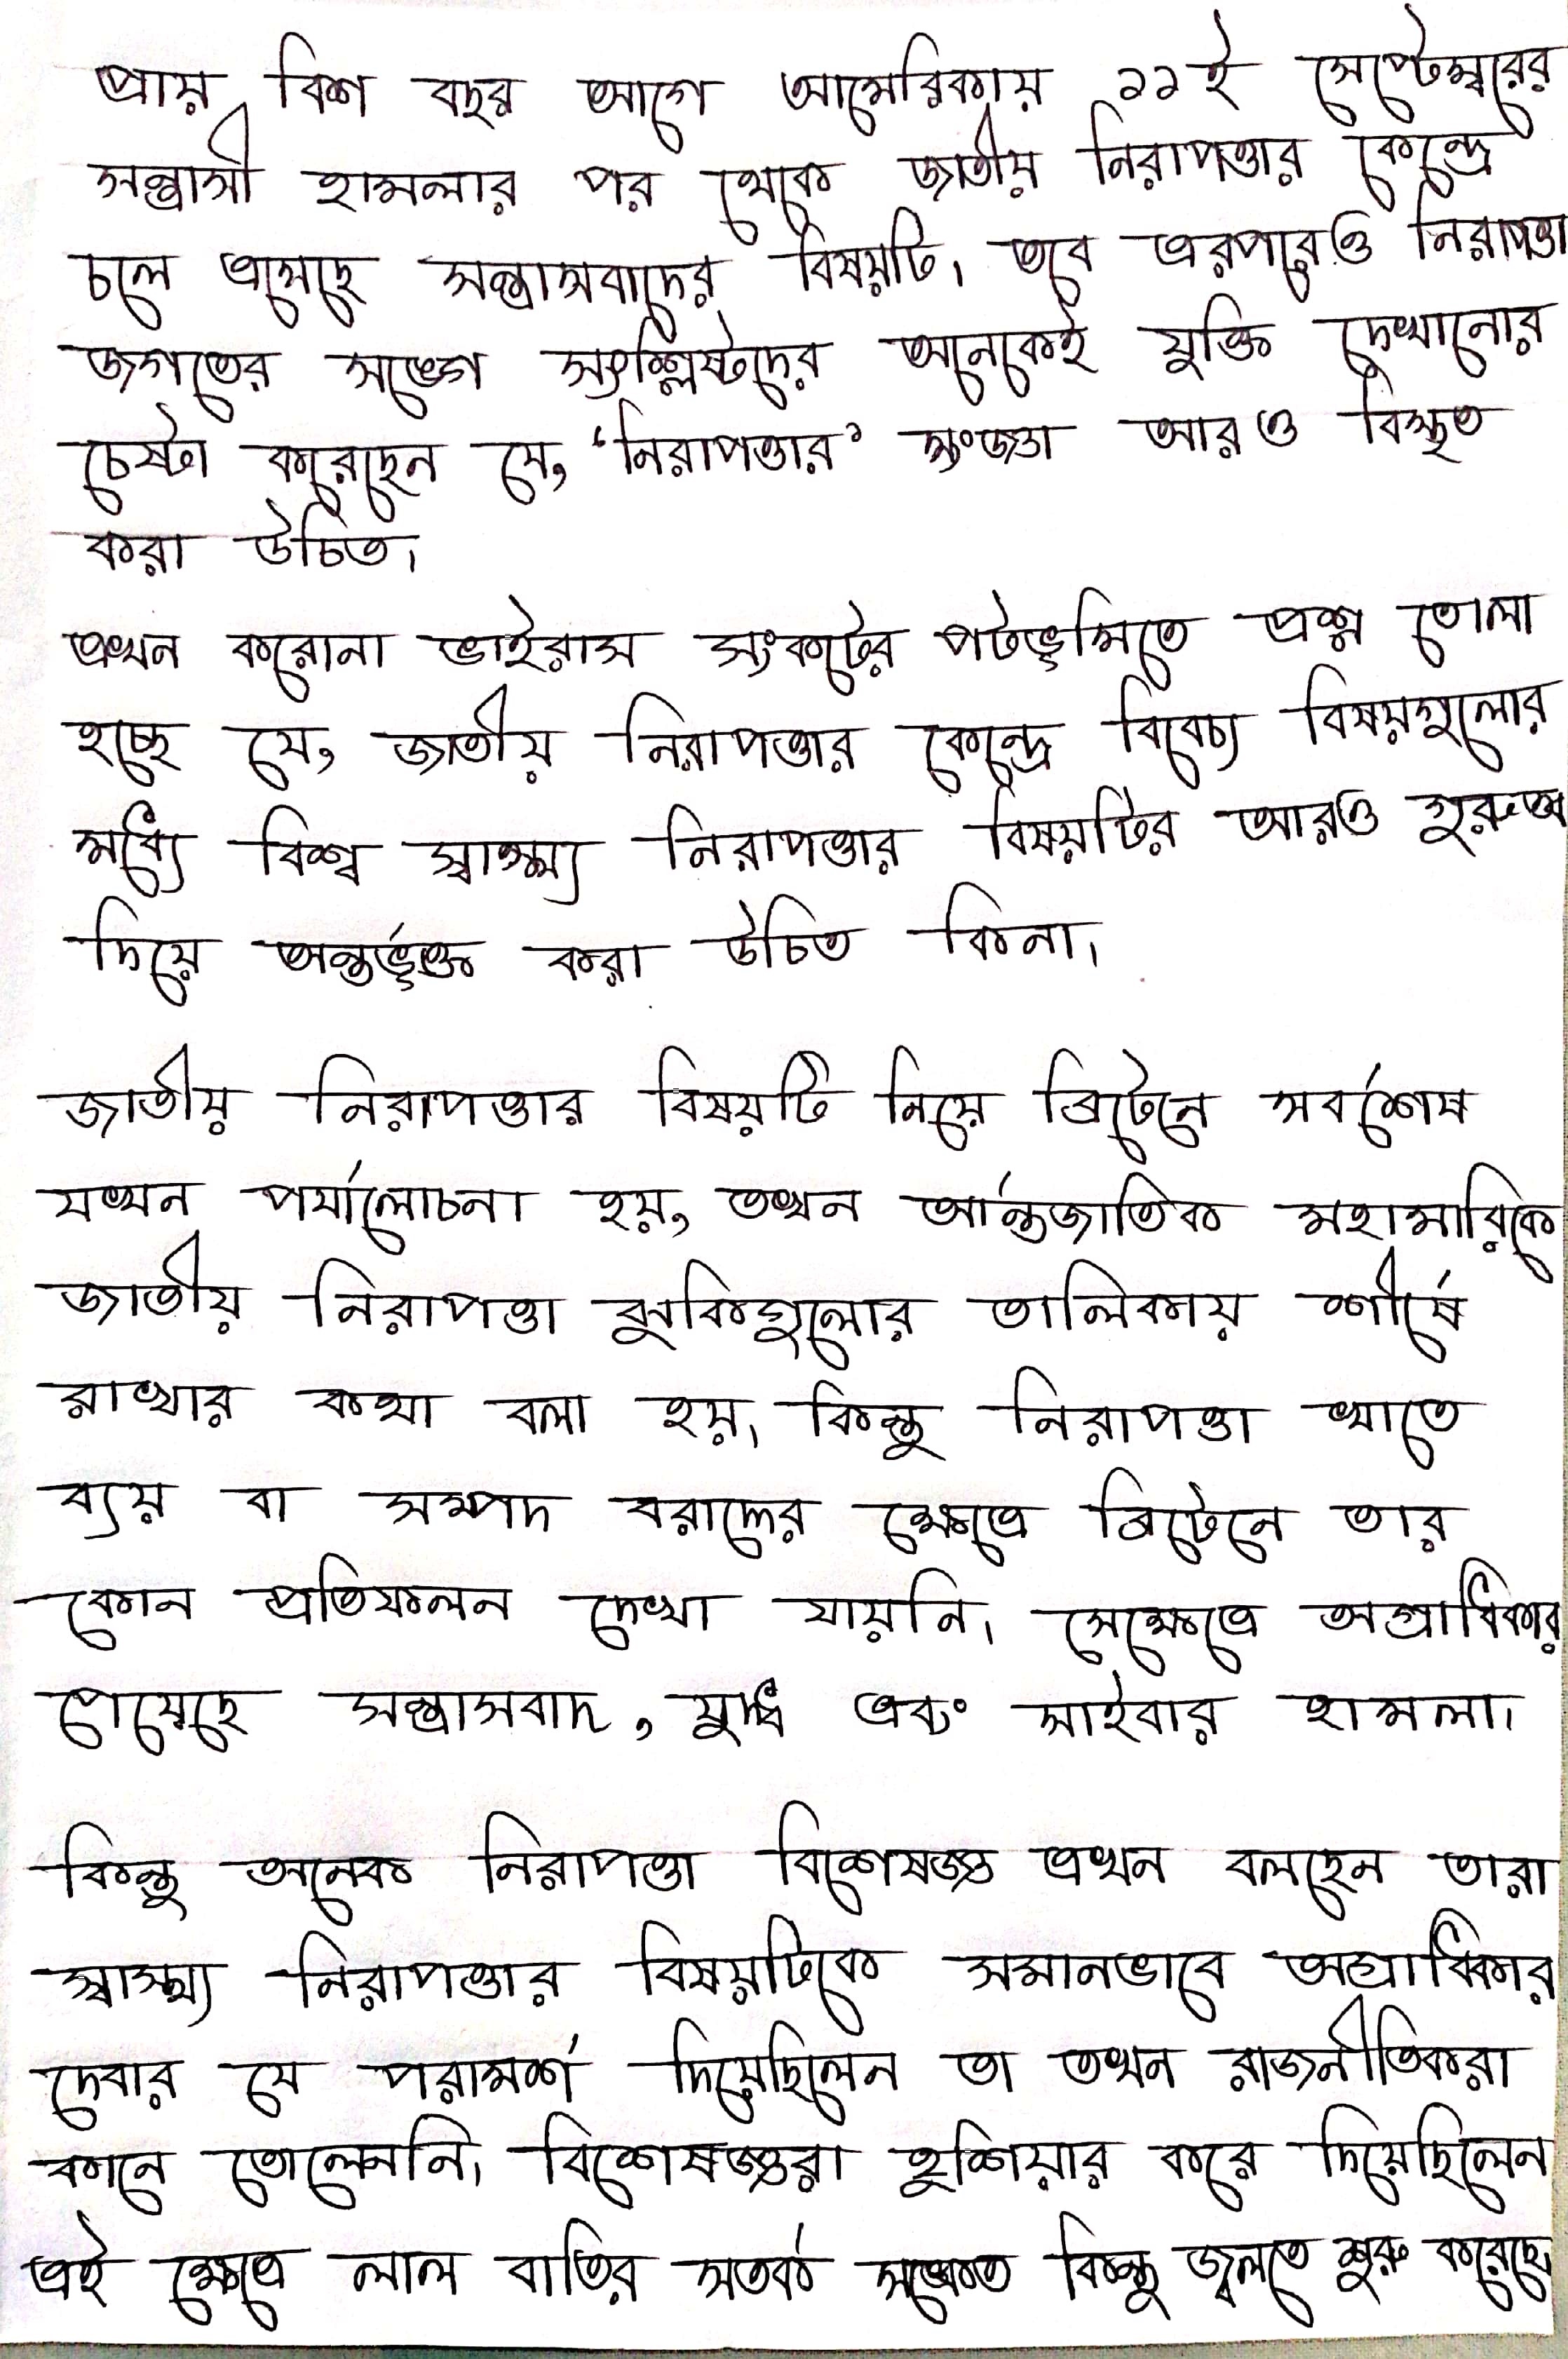 প্রায় বিশ বছর আগে আমেরিকায় ১১ই সেপ্টেম্বরের
সন্ত্রাসী হামলার পর থেকে জাতীয় নিরাপত্তার কেন্দ্রে
চলে এসেছে সন্ত্রাসবাদের বিষয়টি। তবে এরপরেও নিরাপত্তা
জগতের সঙ্গে সংশ্লিষ্টদের অনেকেই যুক্তি দেখানোর
চেষ্টা করেছেন যে, 'নিরাপত্তার' সংজ্ঞা আরও বিস্তৃত
করা উচিত।
এখন করোনা ভাইরাস সংকটের পটভূমিতে প্রশ্ন তোলা
হচ্ছে যে, জাতীয় নিরাপত্তার কেন্দ্রে বিবেচ্য বিষয়গুলোর
মধ্যে বিশ্ব স্বাস্থ্য নিরাপত্তার বিষয়টির আরও গুরুত্ব
দিয়ে অন্তর্ভূক্ত করা উচিত কিনা।
জাতীয় নিরাপত্তার বিষয়টি নিয়ে ব্রিটেনে সর্বশেষ
যখন পর্যালোচনা হয়, তখন আর্ন্তজাতিক মহামারিকে
জাতীয় নিরাপত্তা ঝুকিগুলোর তালিকায় শীর্ষে
রাখার কথা বলা হয়। কিন্তু নিরাপত্তা খাতে
ব্যয় বা সম্পদ বরাদ্দের ক্ষেত্রে ব্রিটেনে তার
কোন প্রতিফলন দেখা যায়নি। সেক্ষেত্রে অগ্রাধিকার
পেয়েছে সন্ত্রাসবাদ, যুদ্ধ এবং সাইবার হামলা।
কিন্তু অনেক নিরাপত্তা বিশেষজ্ঞ এখন বলছেন তারা
স্বাস্থ্য নিরাপত্তার বিষয়টিকে সমানভাবে অগ্রাধিকার
দেবার যে পরামর্শ দিয়েছিলেন তা তখন রাজনীতিকরা
কানে তোলেননি। বিশেষজ্ঞরা হুশিয়ার করে দিয়েছিলেন
এই ক্ষেত্রে লাল বাতির সতর্ক সঙ্কেত কিন্তু জ্বলতে শুরু করেছে।